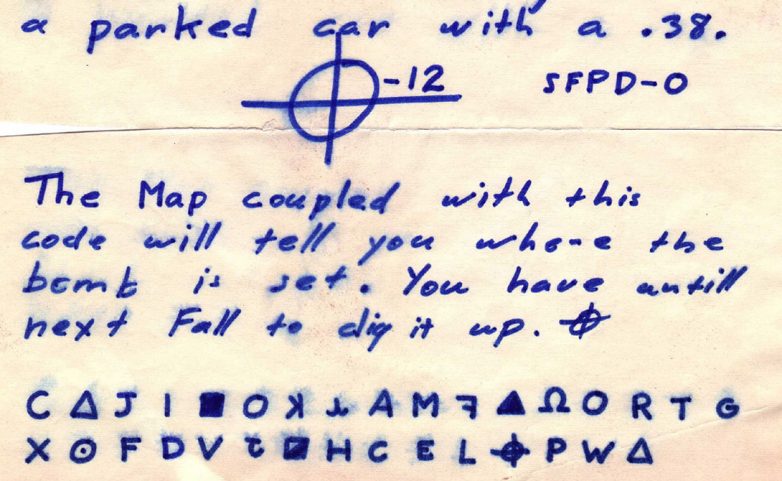 a parked car with a .38.
⌖-12 SFPD-0
The Map coupled with this
code will tell you whone the
bomb is set. You have untill
next Fall to dig it up. ⌖
C Δ J I ■ O ꓘ ⅄ A M ㇆ ▲ Ω O R T G
X ⊙ F D V Ⴀ ◪ H C E L ⌖ P W Δ